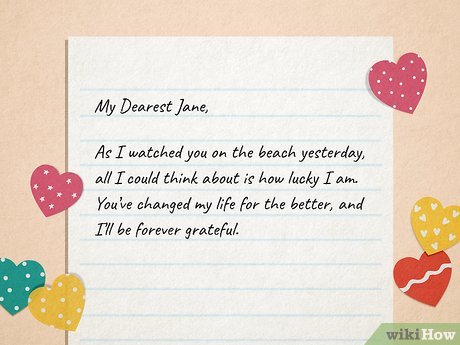 My Dearest Jane,
As I watched you on the beach yesterday,
all I could think about is how lucky I am.
You've changed my life for the better, and
I'll be forever grateful.
wikiHow